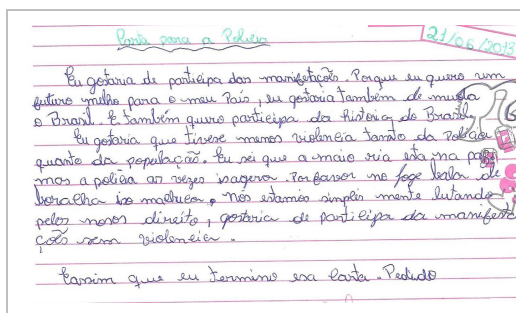 Carta para a Policia
21/06/2013
Eu gostaria de participa das manifetações. Porque eu quero um
futuro milho para o meu País, eu gostaria também de muda
o Brasil. E também quero participa da história do Brasil.
Eu gostaria que tivese menos violencia tanto da Policia
quanto da população. Eu sei que a maio ria esta na pas
mas a policia as vezes inagera. Por favor no foge bala de
boralha iso maltrca, nos estamos simples mente lutando
pelos nosos direito, gostaria de participa da manifest
ções sem violencia.
E assim que eu termino esa Carta. Pedudo